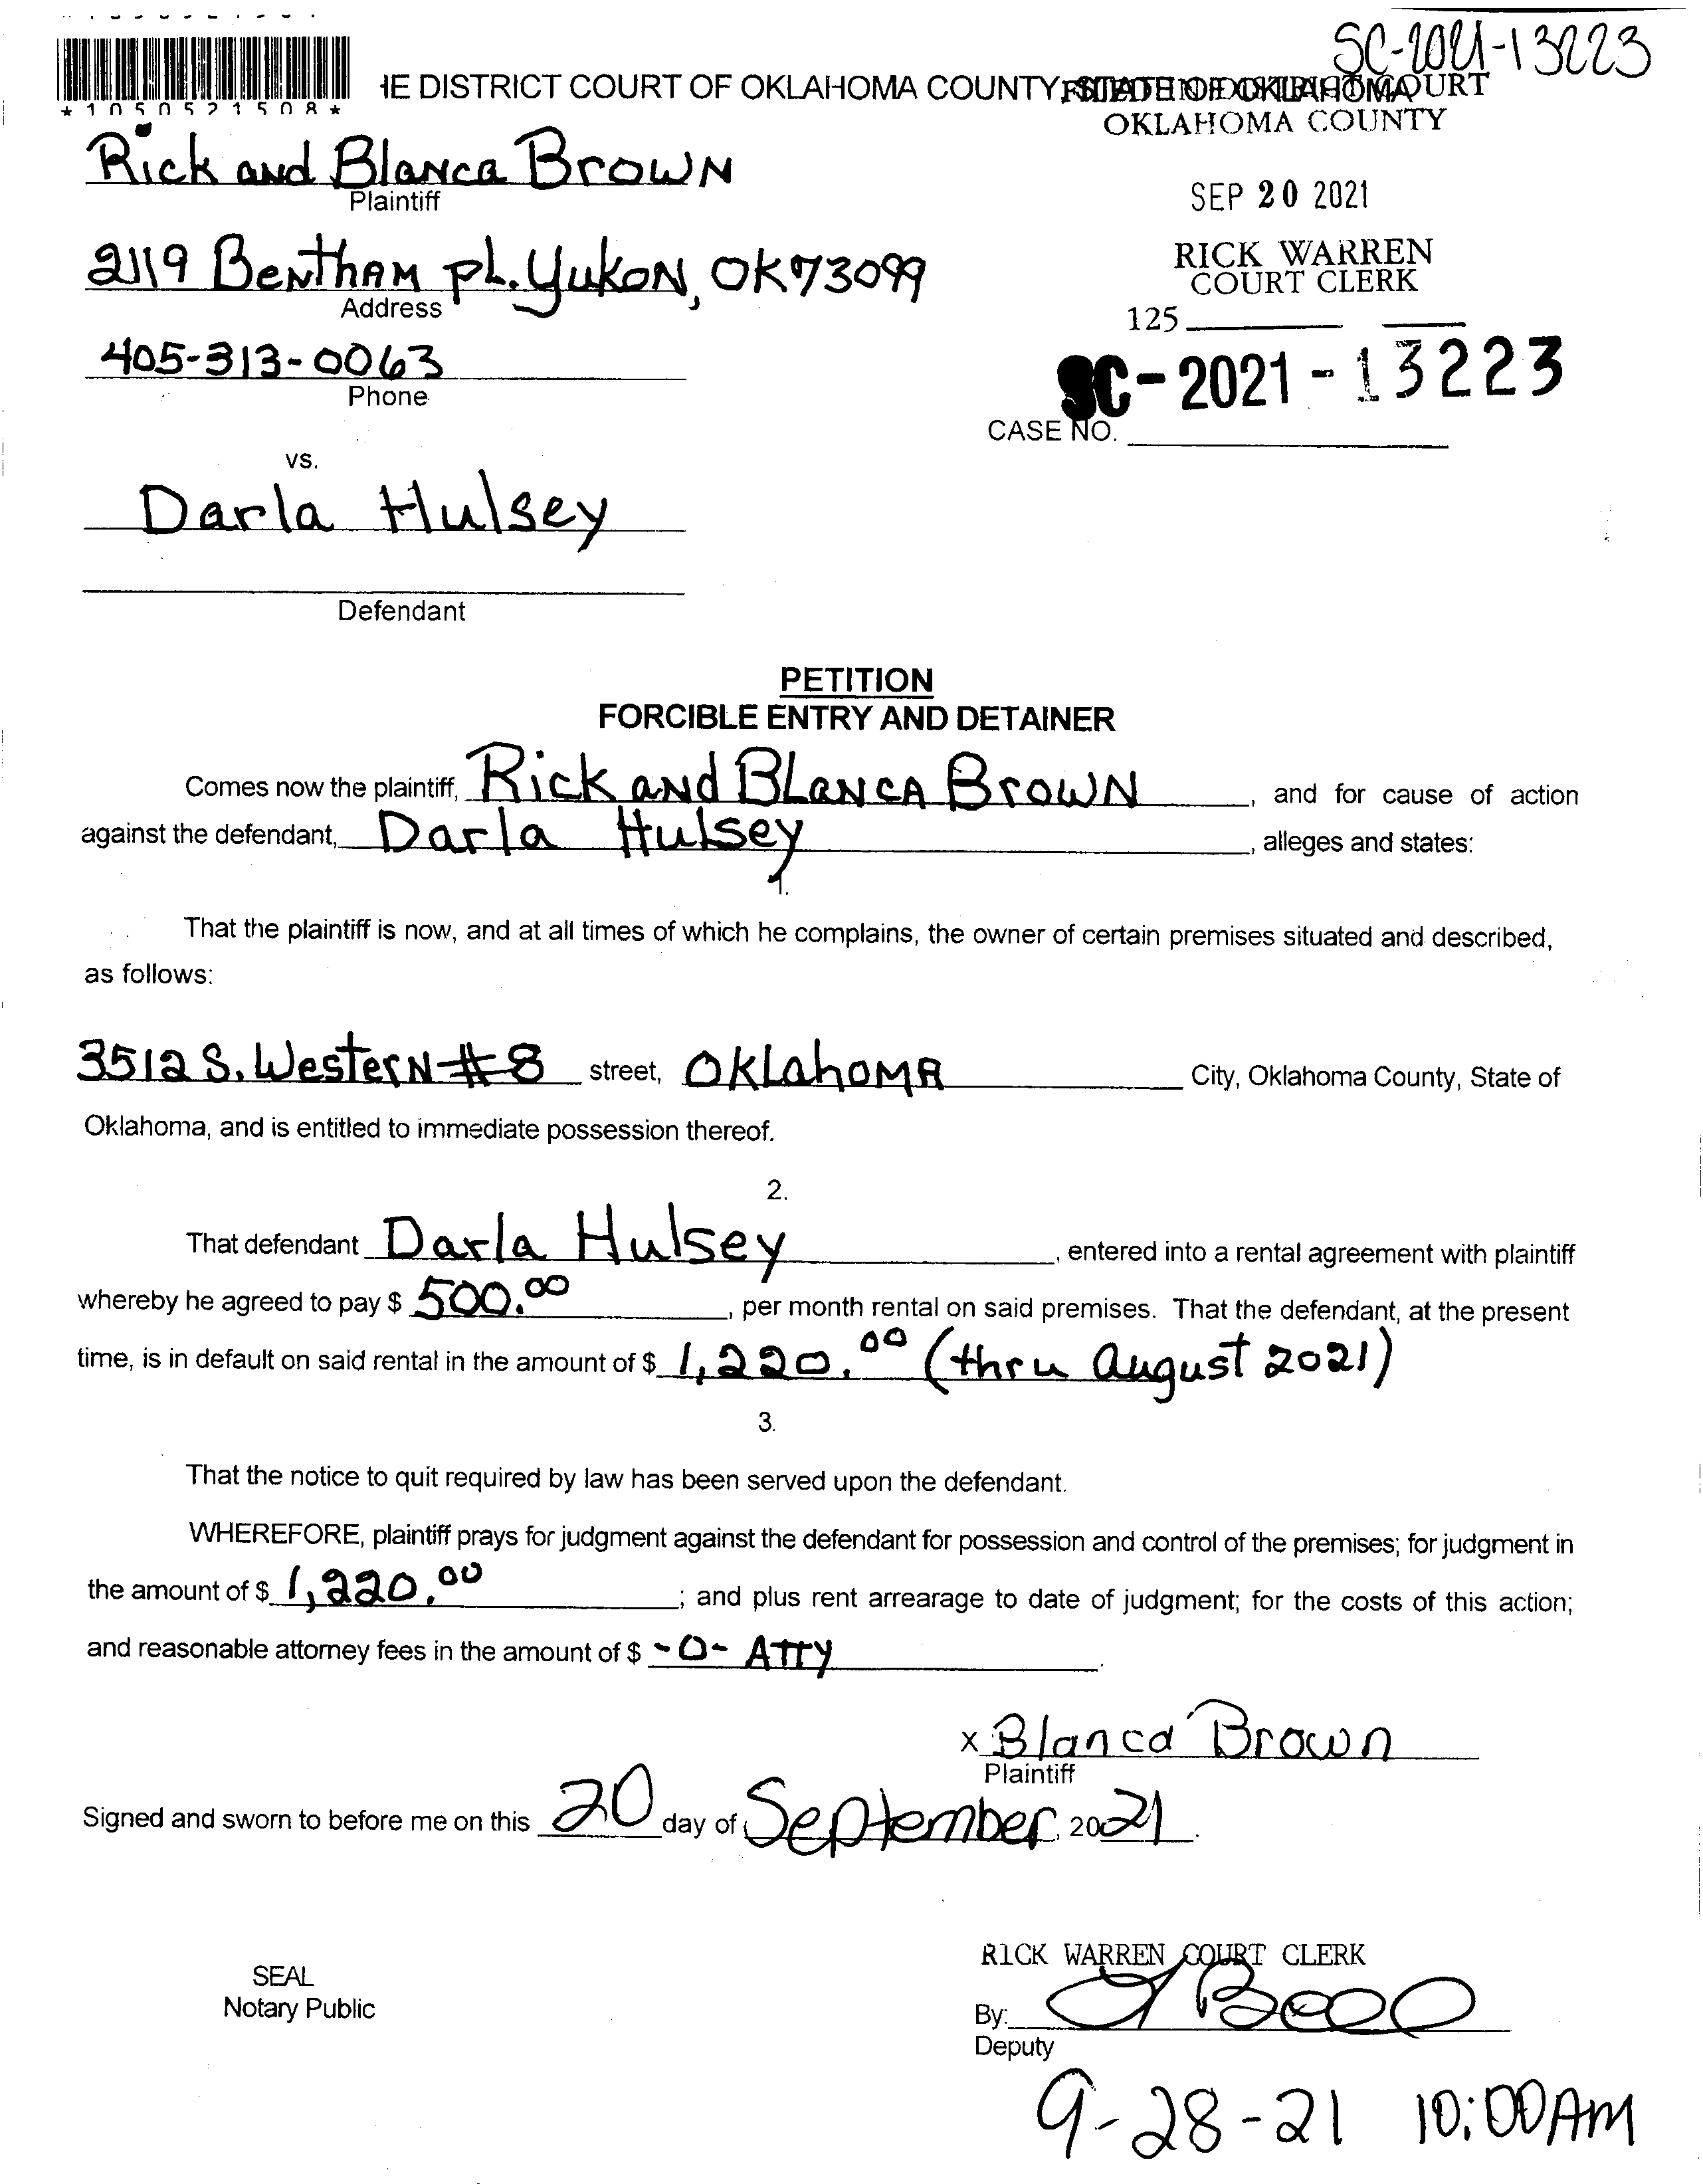 SC-2021-13223
*1050521508*
IE DISTRICT COURT OF OKLAHOMA COUNTY, STATE OF OKLAHOMA
FILED IN DISTRICT COURT
OKLAHOMA COUNTY
Rick and Blanca Brown
Plaintiff
SEP 20 2021
2119 Bentham pl. Yukon, OK 73099
Address
RICK WARREN
COURT CLERK
125
405-313-0063
Phone
SC-2021-13223
CASE NO.
vs.
Darla Hulsey
Defendant
PETITION
FORCIBLE ENTRY AND DETAINER
Comes now the plaintiff, Rick and Blanca Brown, and for cause of action
against the defendant, Darla Hulsey, alleges and states:
1.
That the plaintiff is now, and at all times of which he complains, the owner of certain premises situated and described,
as follows:
3512 S. Western #8 street, Oklahoma City, Oklahoma County, State of
Oklahoma, and is entitled to immediate possession thereof.
2.
That defendant Darla Hulsey, entered into a rental agreement with plaintiff
whereby he agreed to pay $ 500.00, per month rental on said premises. That the defendant, at the present
time, is in default on said rental in the amount of $ 1,220.00 (thru August 2021)
3.
That the notice to quit required by law has been served upon the defendant.
WHEREFORE, plaintiff prays for judgment against the defendant for possession and control of the premises; for judgment in
the amount of $ 1,220.00; and plus rent arrearage to date of judgment; for the costs of this action;
and reasonable attorney fees in the amount of $ -0- ATTY.
x Blanca Brown
Plaintiff
Signed and sworn to before me on this 20 day of September, 2021.
RICK WARREN COURT CLERK
SEAL
Notary Public
By:
Deputy
9-28-21 10:00AM